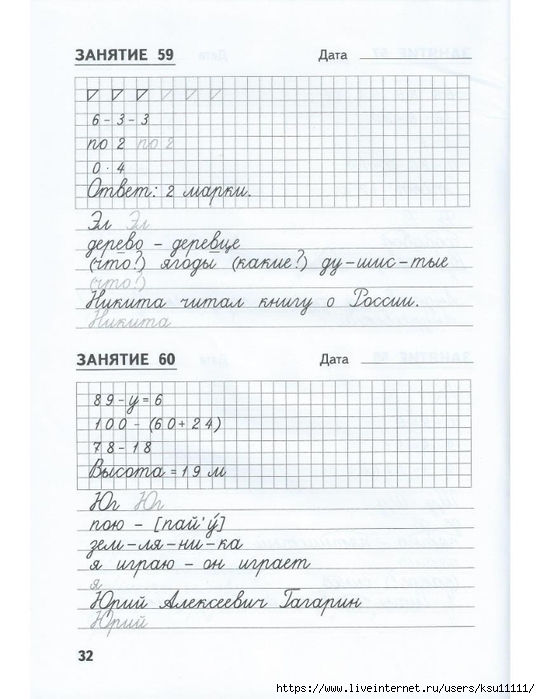 ЗАНЯТИЕ 59 Дата
6 - 3 - 3
по 2 по 2
0 · 4
Ответ: 2 марки.
Эл Эл
дерево - деревце
(что?) ягоды (какие?) ду-шис-тые
(что?)
Никита читал книгу о России.
Никита
ЗАНЯТИЕ 60 Дата
89 - у = 6
100 - (60 + 24)
78 - 18
Высота = 19 м
Юг Юг
пою - [пай'у́]
зем-ля-ни-ка
я играю - он играет
я
Юрий Алексеевич Гагарин
Юрий
32
https://www.liveinternet.ru/users/ksu11111/